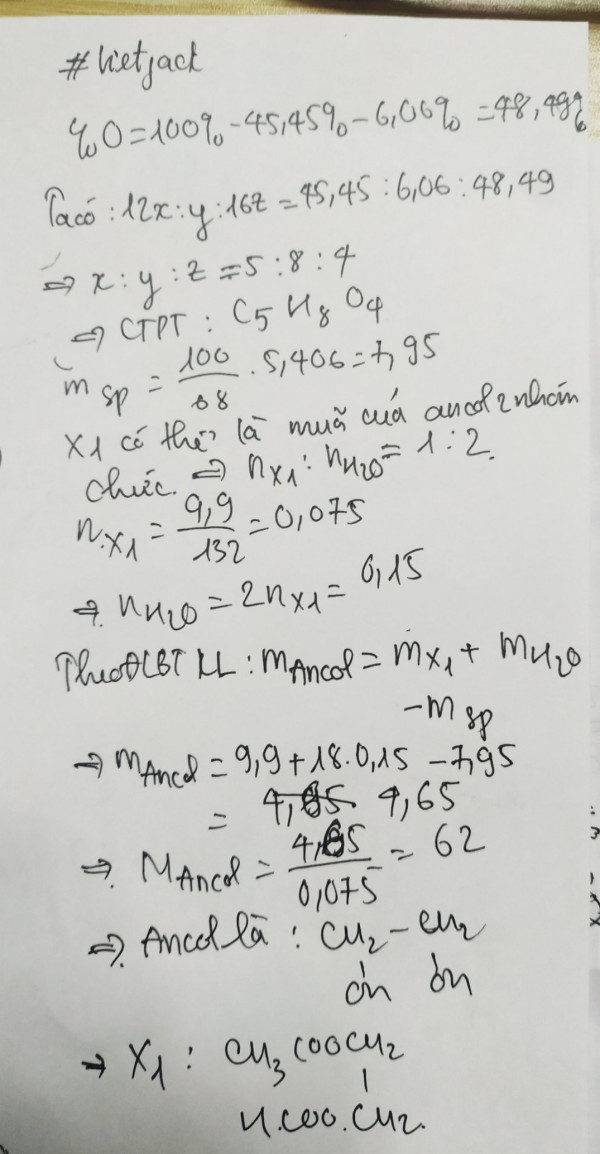 #Vietjack
%O=100%-45,45%-6,06%=48,49%
Ta có:12x:y:16z=45,45:6,06:48,49
=> x:y:z=5:8:4
=> CTPT: C5H8O4
m sp = 100/68 . 5,406=7,95
X1 có thể là muối của ancol 2 nhóm
chức. => nX1:nH2O=1:2.
nX1=9,9/132=0,075
=> nH2O=2nX1=0,15
Theo ĐLBTKL:mAncol=mX1+mH2O
-m sp
=> mAncol=9,9+18.0,15-7,95
= 4,65
=> MAncol=4,65/0,075=62
=> Ancol là: CH2-CH2
OH OH
→ X1: CH3COOCH2
|
H.COO.CH2.